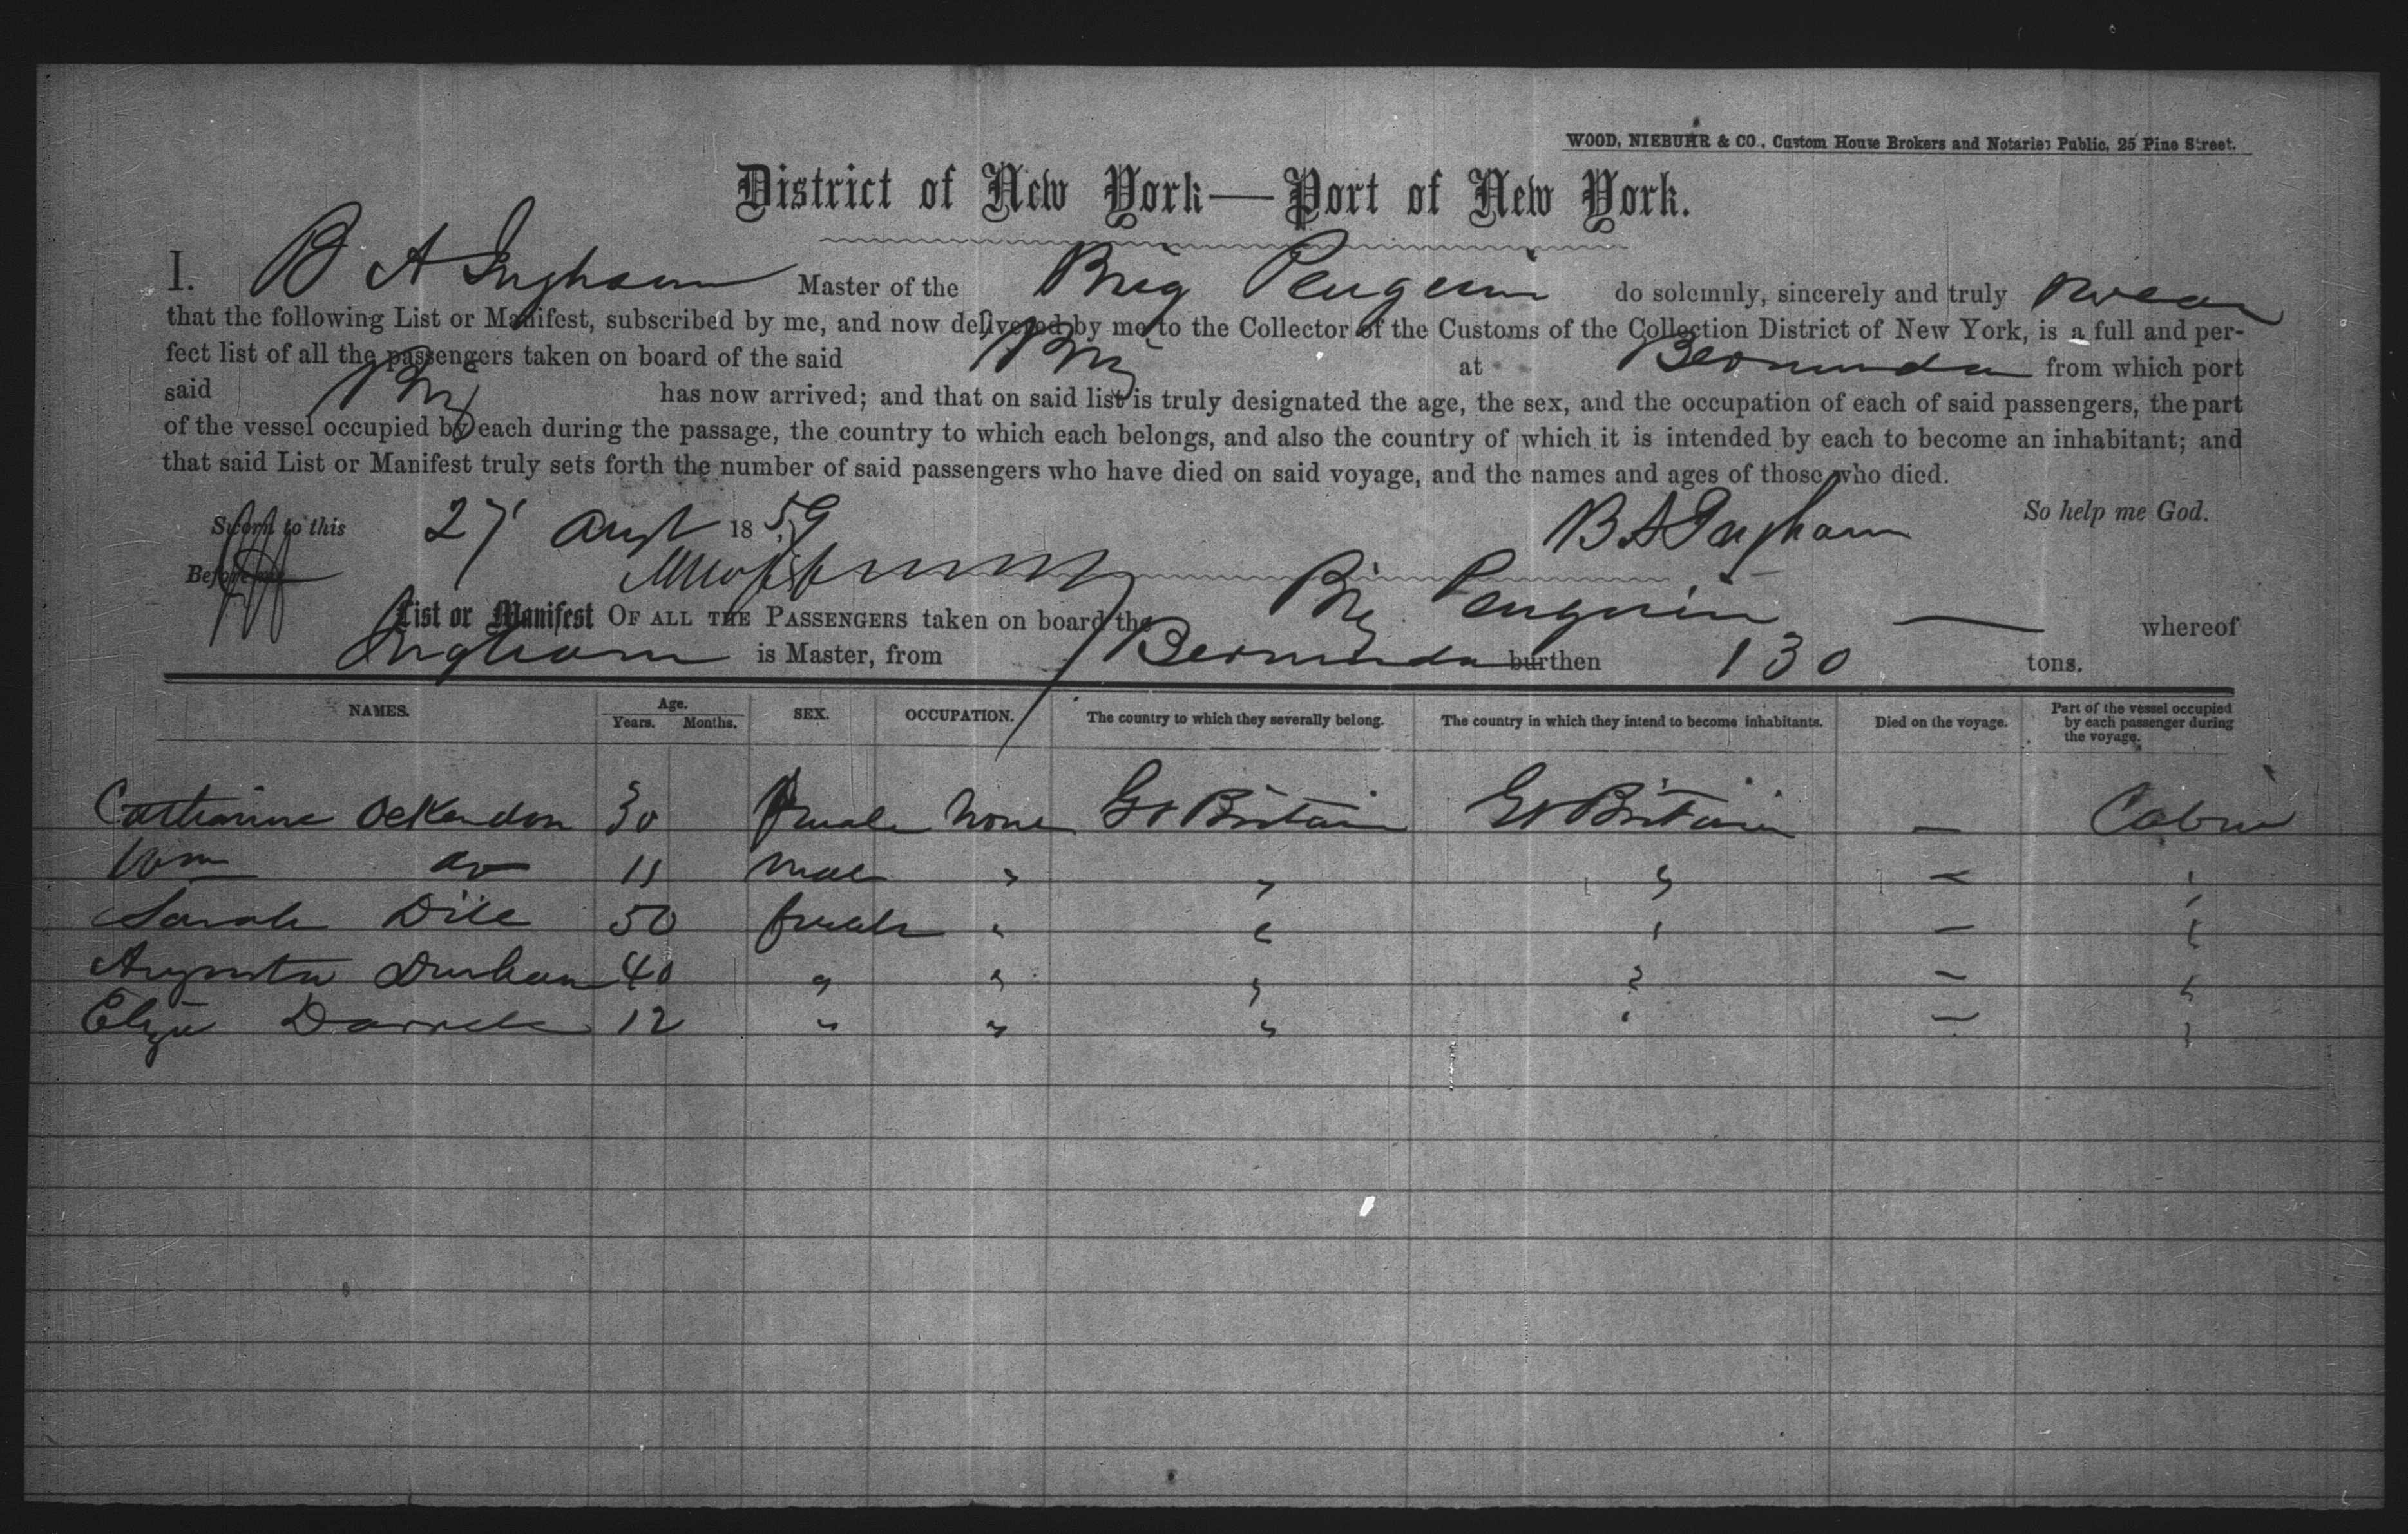 WOOD, NIEBUHR & CO., Custom House Brokers and Notaries Public, 25 Pine Street.
District of New York—Port of New York.
I. B A Ingham Master of the Brig Penguin do solemnly, sincerely and truly swear
that the following List or Manifest, subscribed by me, and now delivered by me to the Collector of the Customs of the Collection District of New York, is a full and per-
fect list of all the passengers taken on board of the said Brig at Bermuda from which port
said Brig has now arrived; and that on said list is truly designated the age, the sex, and the occupation of each of said passengers, the part
of the vessel occupied by each during the passage, the country to which each belongs, and also the country of which it is intended by each to become an inhabitant; and
that said List or Manifest truly sets forth the number of said passengers who have died on said voyage, and the names and ages of those who died.
So help me God.
Sworn to this 27 Augt 1859 B A Ingham
Before me
List or Manifest OF ALL THE PASSENGERS taken on board the Brig Penguin — whereof
Ingham is Master, from Bermuda burthen 130 tons.
NAMES. Age. Years. Months. SEX. OCCUPATION. The country to which they severally belong. The country in which they intend to become inhabitants. Died on the voyage. Part of the vessel occupied by each passenger during the voyage.
Catharine Ockendon 30 female None Gt Britain Gt Britain — Cabin
Wm do 11 male " " " — "
Sarah Dill 50 female " " " — "
Augusta Durham 40 " " " " — "
Eliza Darrell 12 " " " " — "